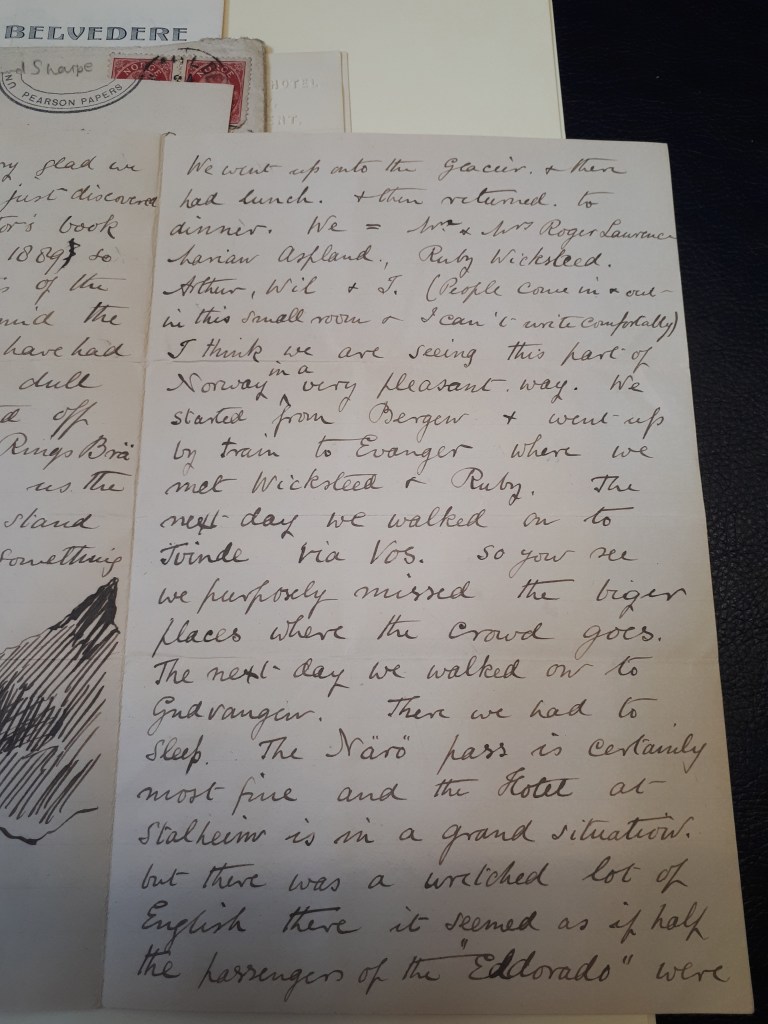 BELVEDERE
d Sharpe
PEARSON PAPERS
HOTEL
NT.
ry glad we
just discovered
tor's book
1889 so
s of the
mid the
have had
dull
d off
Rings Brä
us the
stand
something
We went up onto the Glacier. & then
had lunch. & then returned. to
dinner. We = Mr. & Mrs Roger Laurence
Marian Aspland., Ruby Wicksteed.
Arthur, Wil & I. (People come in & out
in this small room & I can't write comfortally)
I think we are seeing this part of
Norway in a very pleasant way. We
started from Bergen & went up
by train to Evanger where we
met Wicksteed & Ruby. The
next day we walked on to
Tvinde via Vos. So you see
we purposely missed the biger
places where the crowd goes.
The next day we walked on to
Gudvangen. There we had to
sleep. The Närö pass is certainly
most fine and the Hotel at
Stalheim is in a grand situation.
but there was a wretched lot of
English there it seemed as if half
the passengers of the "Eldorado" were